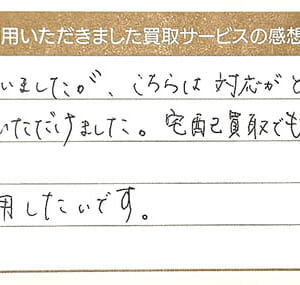 用いただきました買取サービスの感想
いましたが、こちらは対応がと
いただけました。宅配買取でも
用したいです。